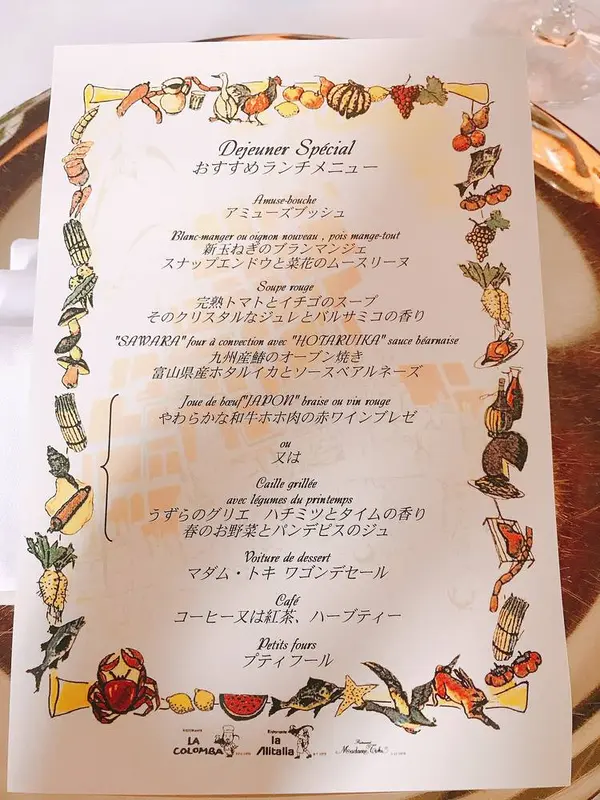 Dejeuner Spécial
おすすめランチメニュー
Amuse-bouche
アミューズブッシュ
Blanc-manger ou oignon nouveau , pois mange-tout
新玉ねぎのブランマンジェ
スナップエンドウと菜花のムースリーヌ
Soupe rouge
完熟トマトとイチゴのスープ
そのクリスタルなジュレとバルサミコの香り
"SAWARA" four à convection avec "HOTARUIKA" sauce béarnaise
九州産鰆のオーブン焼き
富山県産ホタルイカとソースベアルネーズ
Joue de bœuf"JAPON" braise ou vin rouge
やわらかな和牛ホホ肉の赤ワインブレゼ
ou
又は
Caille grillée
avec légumes du printemps
うずらのグリエ ハチミツとタイムの香り
春のお野菜とパンデピスのジュ
Voiture de dessert
マダム・トキ ワゴンデセール
Café
コーヒー又は紅茶、ハーブティー
Petits fours
プティフール
LA COLOMBA
la Alitalia
Madame Toki